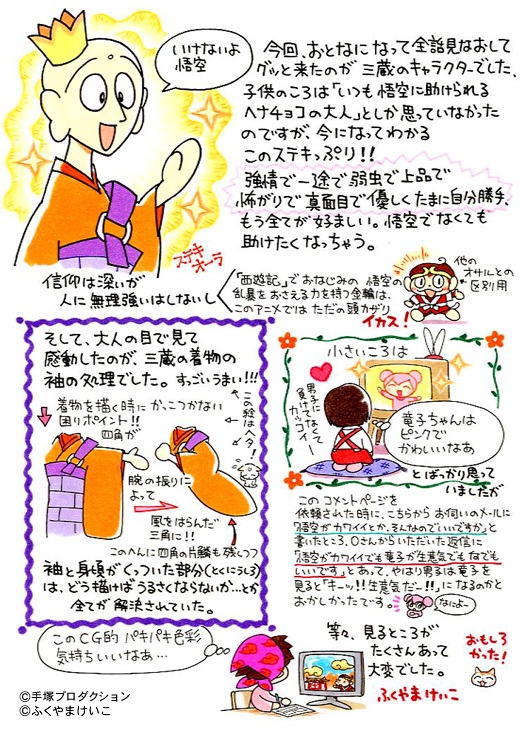 いけないよ
悟空
今回、おとなになって全話見なおして
グッと来たのが三蔵のキャラクターでした。
子供のころは「いつも悟空に助けられる
ヘナチョコの大人」としか思っていなかった
のですが、今になってわかる
このステキっぷり!!
強情で一途で弱虫で上品で
怖がりで真面目で優しくたまに自分勝手、
もう全てが好ましい。悟空でなくても
助けたくなっちゃう。
ステキ
オーラ
信仰は深いが
人に無理強いはしないし
「西遊記」でおなじみの悟空の
乱暴をおさえる力を持つ金輪は、
このアニメではただの頭かざり
イカス!
他の
オサルとの
区別用
そして、大人の目で見て
感動したのが、三蔵の着物の
袖の処理でした。すっごいうまい!!!
着物を描く時にかっこつかない
困りポイント!!
四角が
この絵はヘタ!
腕の振りに
よって
風をはらんだ
三角に!!
このへんに四角の片鱗も残しつつ
袖と身頃がくっついた部分(とくにうしろ)
は、どう描けばうるさくならないか…とか
全てが解決されていた。
小さいころは
男子に
負けてなくて
カッコイー
竜子ちゃんは
ピンクで
かわいいなあ
とばっかり思って
いましたが
このコメントページを
依頼された時に、こちらからお伺いのメールに
「悟空がカワイイとか、そんなのでいいですか」と
書いたところ、Oさんからいただいた返信に
「悟空がカワイイでも竜子が生意気でもなでも
いいです」とあって、やはり男子は竜子を
見ると「キーッ!!生意気だー!!」になるのかと
おかしかったです。
なによー
このCG的パキパキ色彩
気持ちいいなあ…
等々、見るところが
たくさんあって
大変でした。
ふくやまけいこ
おもしろ
かった!
©手塚プロダクション
©ふくやまけいこ